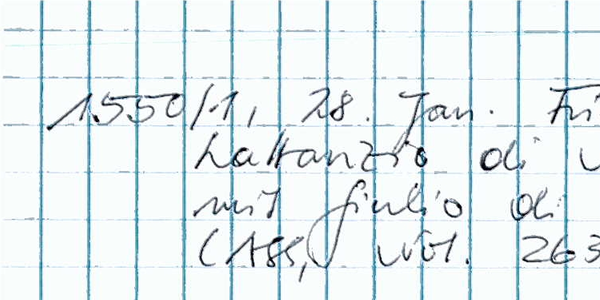 1550/1, 28. Jan. Fri
Lattanzio di
mit Giulio di
(ASS, Not. 263